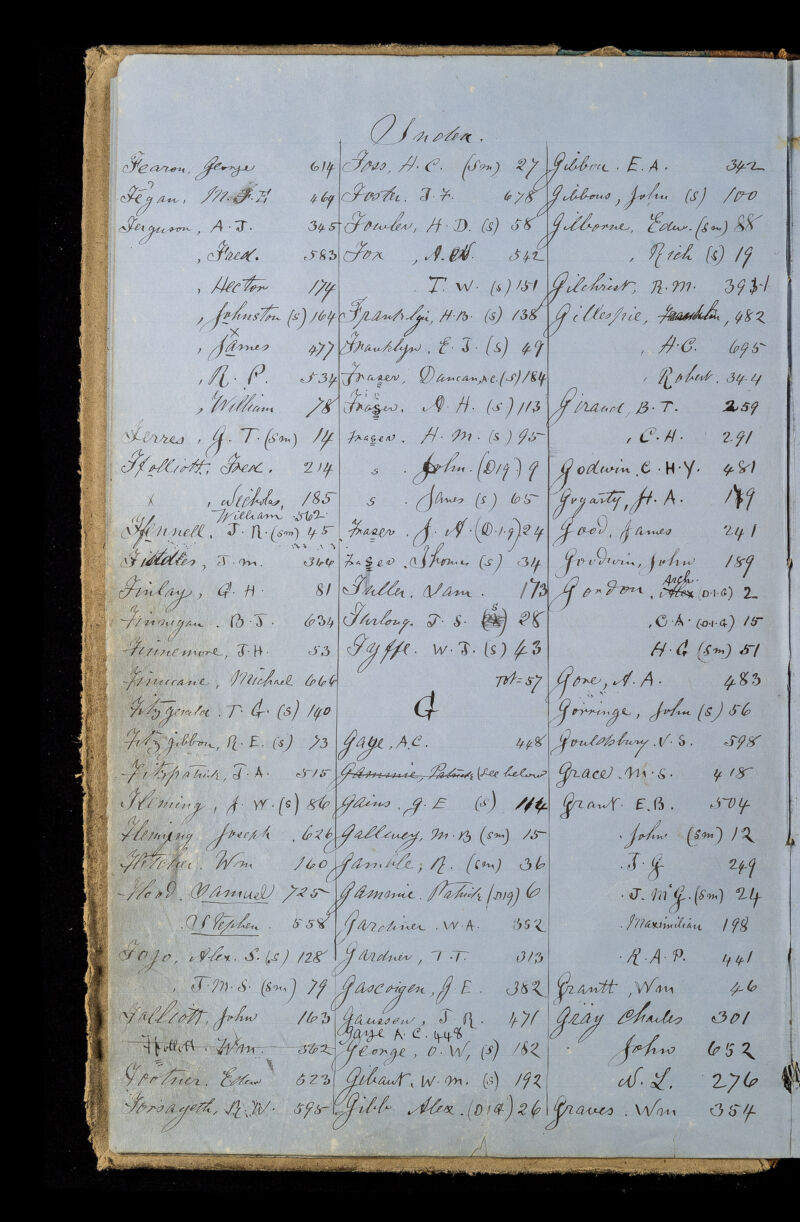 Index.
Fearon, George 614
Fegan, M. F. 464
Ferguson, A. J. 345
, Fred. 583
, Hector 174
, Johnston (s) 164
, James 477
, R. P. 534
, William 78
Ferres, G. T. (sm) 14
Ffolliott, Fred. 214
x , Nicholas, 185
William 562
Ffinnell, J. R. (sm) 45
J. M. 366
Finlay, G. H. 81
Finnigan, B. J. 634
Finnemore, J. H. 53
Finucane, Michael 666
Fitzgerald, T. G. (s) 140
Fitzgibbon, R. E. (s) 73
Fitzpatrick, J. A. 515
Fleming, A. W. (s) 86
Fleming Joseph 626
Fletcher, Wm 160
Flood, Samuel 725
Stephen 558
Fojo, Alex. S. (s) 128
, J. M. S. (sm) 79
Folliott, John 163
Ffolliott, Wm. 562
Footner, Edw 523
Forsayeth, R. W. 595
Foss, H. C. (sm) 27
Foster, J. F. 678
Fowler, H. D. (s) 58
Fox , A. 542
T. W. (s) 151
H. B. (s) 138
Franklyn, E. J. (s) 49
Frazer, Duncan, Mc. (s) 184
Fraser, A. H. (s) 113
Fraser, H. M. (s) 95
s . John. (D19) 9
s . James (s) 65
Frazer, J. A. (D.1.9) 24
Fraser, Thomas (s) 34
Fuller, Sam. 173
Furlong, J. S. (s) 28
Fyffe, W. J. (s) 43
Tot = 57
G
Gaye, A.C. 448
Gammie, Patrick (see below
Gains, G. E (s) 114
Gallwey, M. B (sm) 15
Gamble, R. (sm) 36
Gammie, Patrick (D19) 6
Gardiner, W. A. 352
Gardner, T. T. 313
Gascoigen, G. E. 382
Gaussen, J. R. 471
Gaye A. C. 448
George, O. W, (s) 182
Gibaut, W. M. (s) 192
Gibb Alex. (D1G) 26
Gibbon, E. A. 342
Gibbons, John (s) 100
Gilborne, Edw. (sm) 88
, Rich (s) 19
Gilchrist, R. M. 391
Gillespie, Franklin, 482
, H. C. 695
, Robert. 344
Giraud, B. T. 259
, C. H. 291
Godwin, C. H. Y. 481
Gogarty, H. A. 179
Good, James 241
Goodwin, John 189
Gordon, Arch. Alex (D.I.G) 2
, C. A. (D.I.G) 15
H. G (sm) 51
Gore, A. A. 483
Gorringe, John (s) 56
Gouldsbury, V. S. 598
Grace, M. S. 418
Grant, E. B. 504
. John (sm) 12
. J. G 249
. J. McG. (sm) 24
. Maximilian 198
. R. A. P. 441
Grantt, Wm 46
Gray Charles 301
. John 652
N. L. 276
Graves, Wm 354